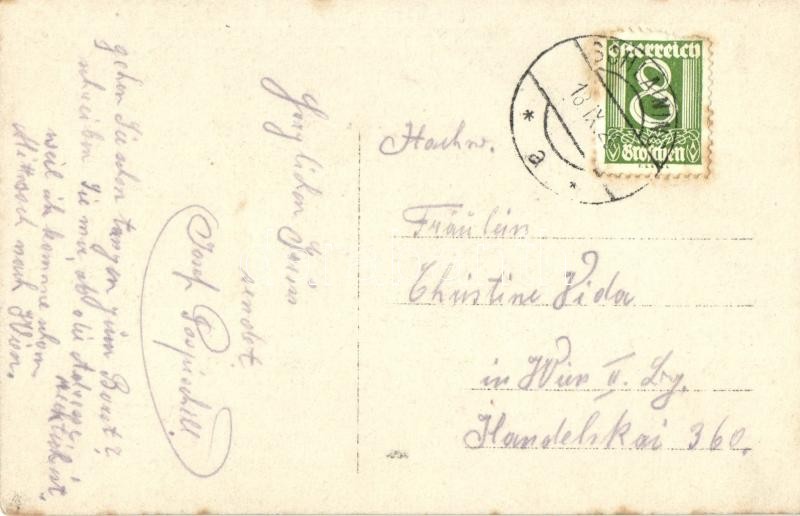 Österreich
8
Groschen
a
Hochw.
Fräulein
Christine Vida
in Wien II. Bz.
Handelskai 360.
Herzlichen Gruss
sendet
Josef Pospischill
gehen Sie schon tanzen zum
schreiben Sie mir, ob die Adresse
richtig ist,
weil ich komme
Mittwoch nach Wien.